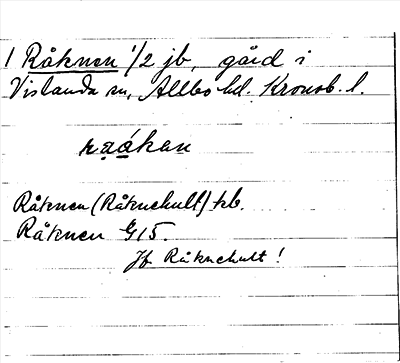 1 Råknen 1/2 jb, gård i
Vislanda sn, Allbo hd. Kronob. l.
Råknen (Råknehult) tkb.
Råknen G15.
Jf Råknehult!